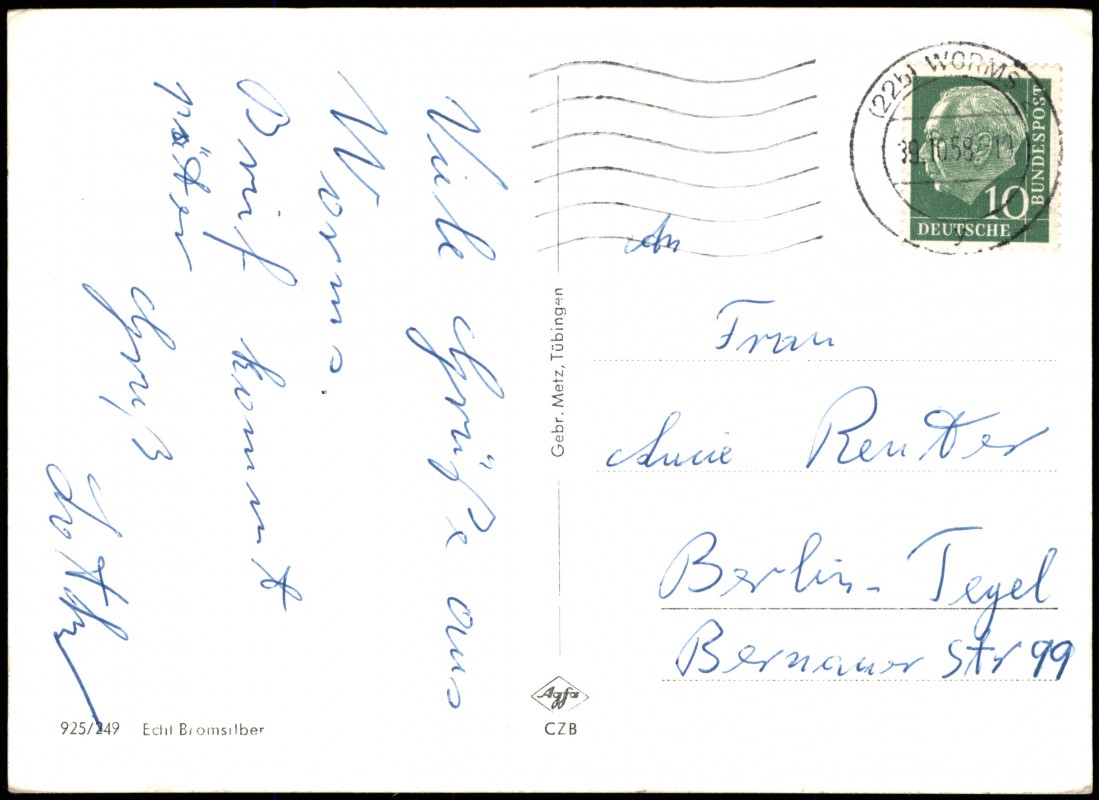 Viele Grüße aus
Worms.
Brief kommt
später
Gruß
(22b) WORMS
10
DEUTSCHE
BUNDESPOST
An
Frau
Lucie Reutter
Berlin-Tegel
Bernauer Str 99
Gebr. Metz, Tübingen
Agfa
CZB
925/249 Echt Bromsilber